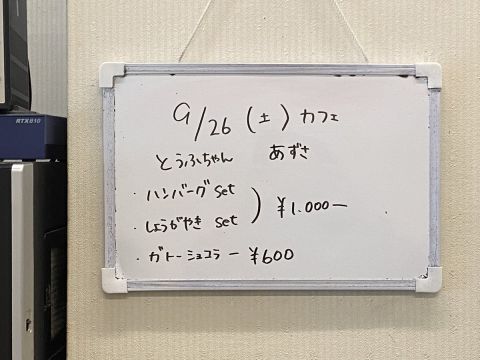 RTX810
9/26(土)カフェ
とうふちゃん あずさ
・ハンバーグset
・しょうがやき set
) ¥1.000ー
・ガトーショコラ ー ¥600